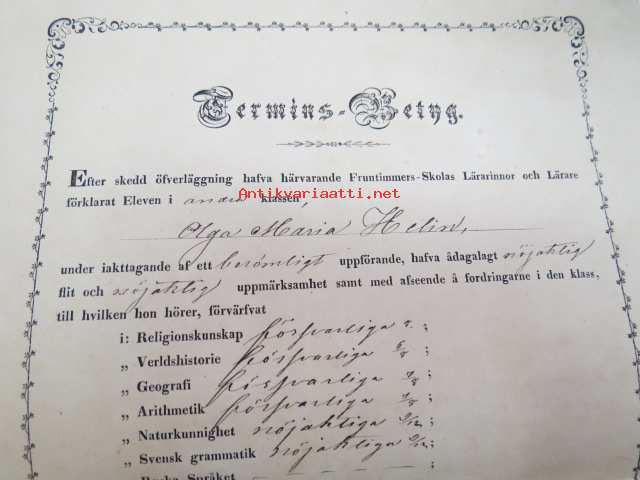 Termins-Betyg.
Efter skedd öfverläggning hafva härvarande Fruntimmers-Skolas Lärarinnor och Lärare
Antikvariaatti.net
förklarat Eleven i andra klassen,
Olga Maria Helin,
under iakttagande af ett berömligt uppförande, hafva ådagalagt nöjaktig
flit och nöjaktig uppmärksamhet samt med afseende å fordringarne i den klass,
till hvilken hon hörer, förvärfvat
i: Religionskunskap försvarliga ;
„ Verldshistorie försvarliga ;
„ Geografi försvarliga ;
„ Arithmetik försvarliga ;
„ Naturkunnighet nöjaktiga ;
„ Svensk grammatik nöjaktiga ;
„ Ryska Språket